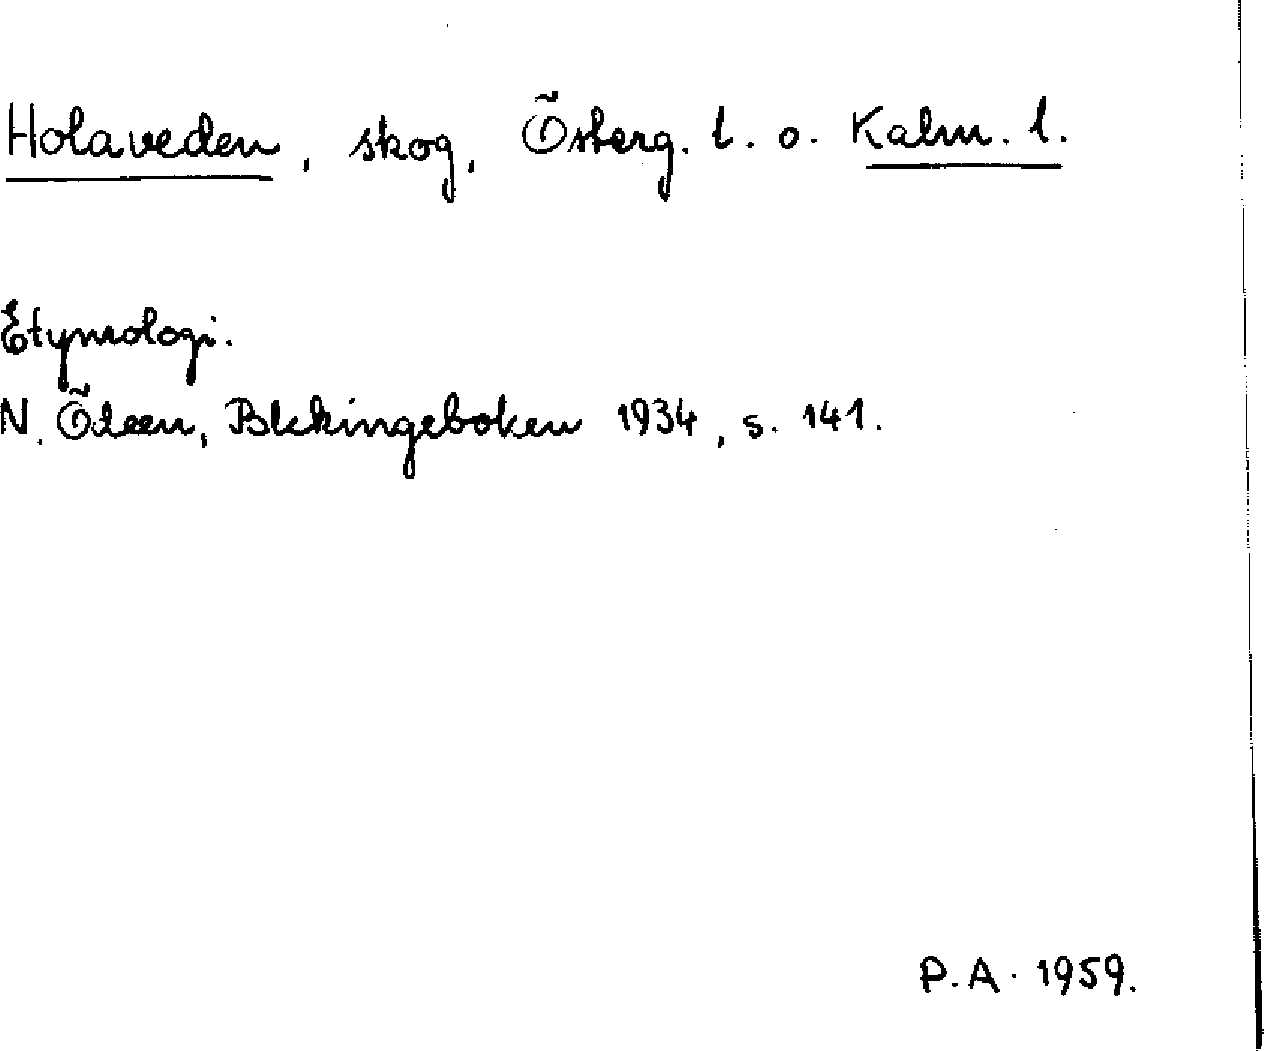 Holaveden, skog, Österg. l. o. Kalm. l.
Etymologi.
N. Ödeen, Blekingeboken 1934, s. 141.
P.A. 1959.